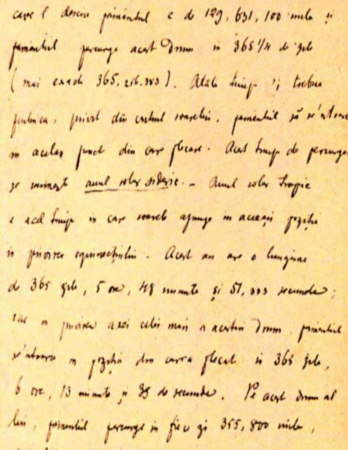 care-l descrie pământul e de 129,631,100 mile și
pământul percurge acest drum în 365 1/4 de zile
(mai exact 365,256.383). Atâta timp îi trebue
pentru ca, privit din centrul soarelui, pământul să se'ntoarcă
în acelaș punct din care plecase. Acest timp de percurgere
se numește anul solar sideric. – Anul solar tropic
e acel timp în care soarele ajunge în aceeași poziție
în privirea equinocțiului. Acest an are o lungime
de 365 zile, 5 ore, 48 minute și 51,333 secunde;
iar în privirea axei celei mari a acestui drum, pământul
se'ntoarce în poziția din care a plecat în 365 zile,
6 ore, 13 minute și 58 de secunde. Pe acest drum al
lui, pământul percurge în fiece zi 355,800 mile,